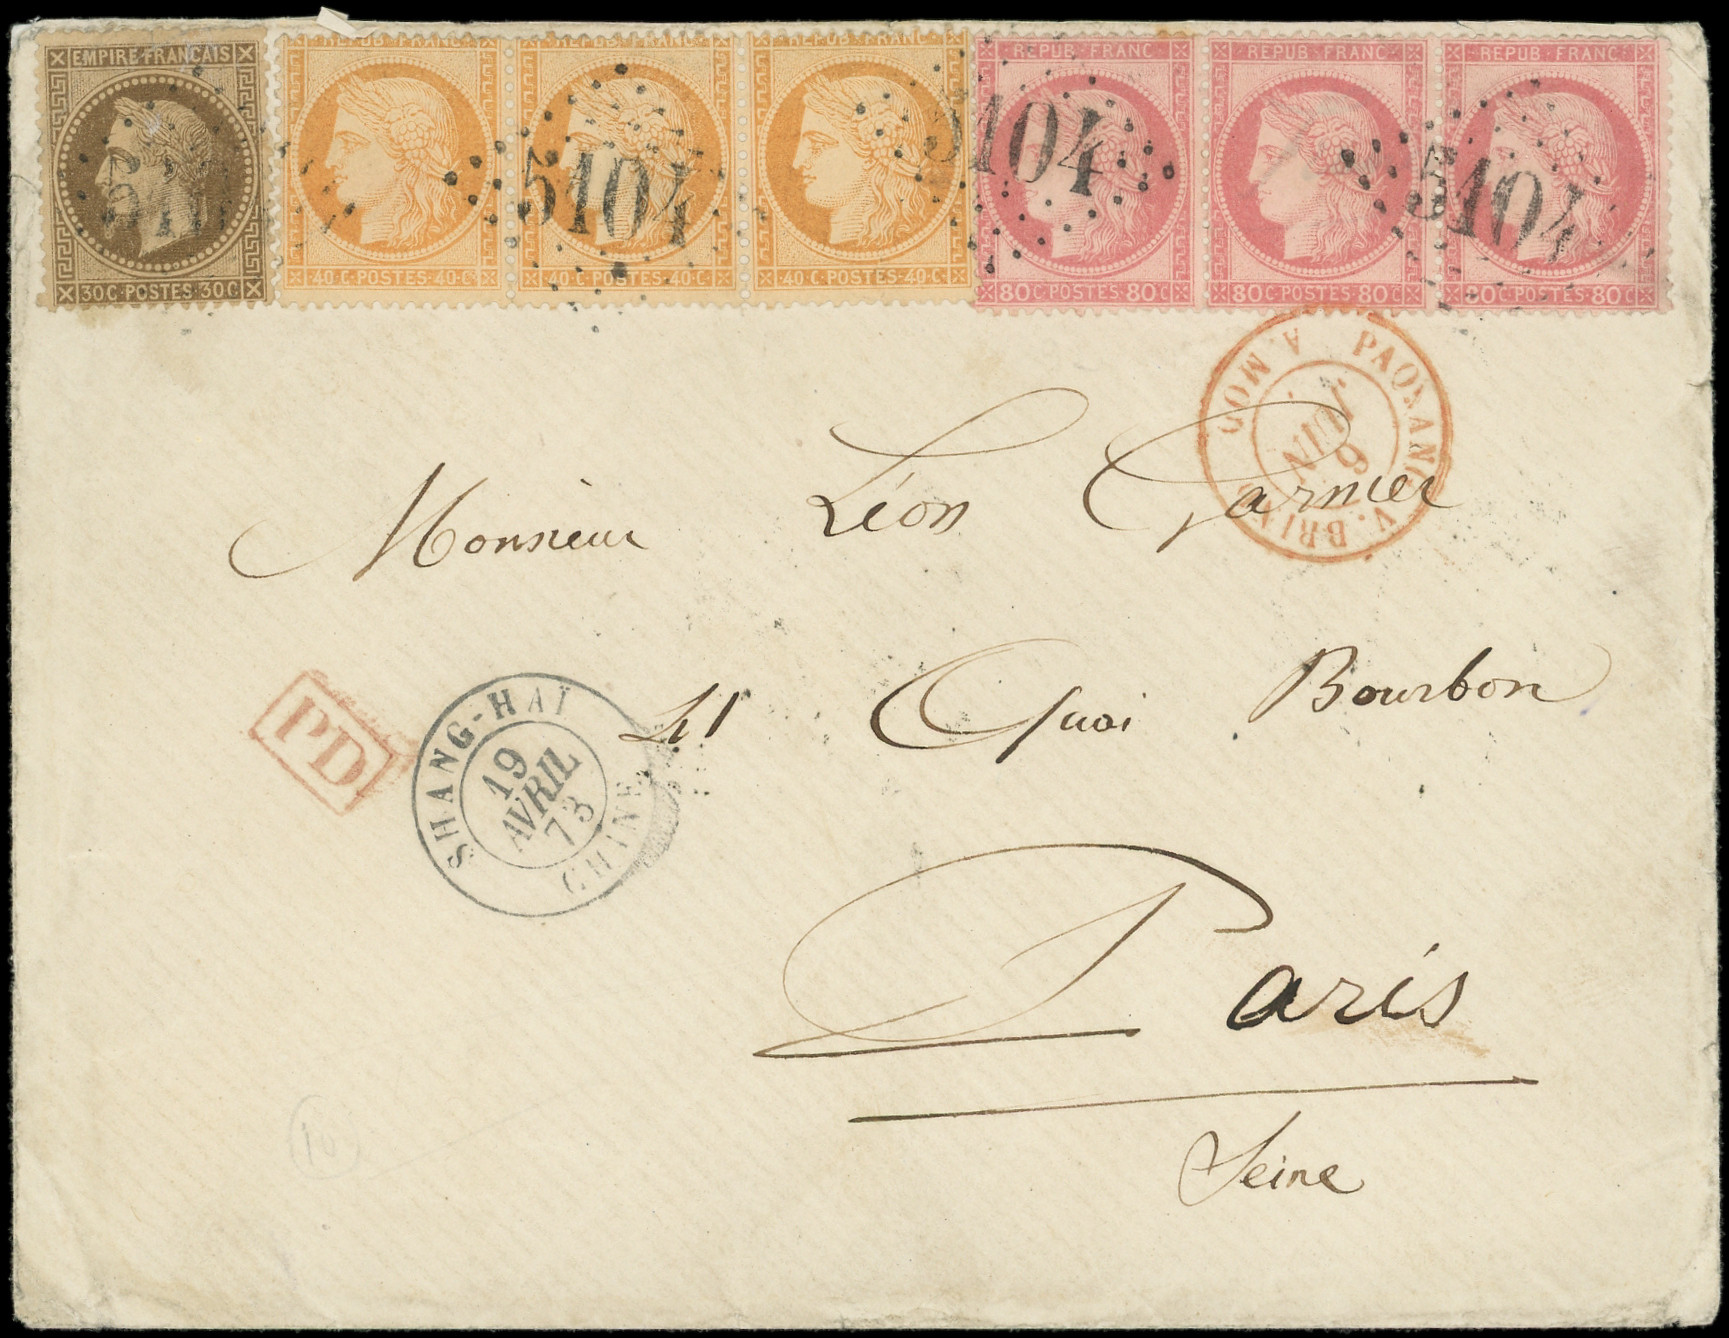 EMPIRE FRANÇAIS
30C·POSTES·30C
REPUB·FRANC
40·C·POSTES·40·C
REPUB·FRANC
40·C·POSTES·40·C
REPUB·FRANC
40·C·POSTES·40·C
REPUB·FRANC
80C POSTES 80C
REPUB·FRANC
80C POSTES 80C
REPUB·FRANC
80C POSTES 80C
5104
5104
5104
V. BRIND A MOD
9
JUIN
Monsieur Léon Garnier
41 Quai Bourbon
PD
SHANG-HAÏ
19
AVRIL
73
CHINE
Paris
Seine
10